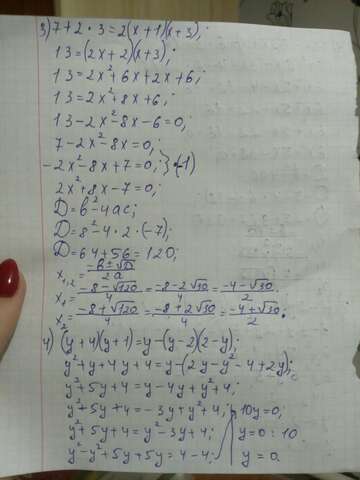 3) 7+2·3=2(x+1)(x+3);
13=(2x+2)(x+3);
13=2x²+6x+2x+6;
13=2x²+8x+6;
13-2x²-8x-6=0;
7-2x²-8x=0;
-2x²-8x+7=0; }·(-1)
2x²+8x-7=0;
D=b²-4ac;
D=8²-4·2·(-7);
D=64+56=120;
x₁,₂=(-b±√D)/2a
x₁=(-8-√120)/4=(-8-2√30)/4=(-4-√30)/2
x₂=(-8+√120)/4=(-8+2√30)/4=(-4+√30)/2.
4) (y+4)(y+1)=y-(y-2)(2-y);
y²+y+4y+4=y-(2y-y²-4+2y);
y²+5y+4=y-4y+y²+4;
y²+5y+4=-3y+y²+4;
y²+5y+4=y²-3y+4;
y²-y²+5y+5y=4-4;
10y=0;
y=0:10
y=0.